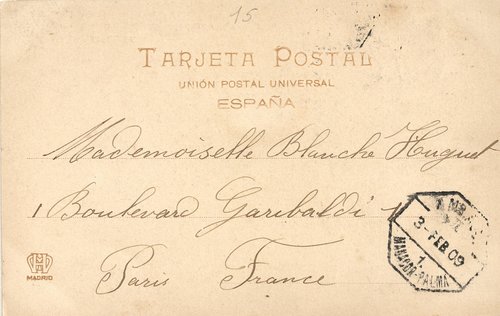 15
TARJETA POSTAL
UNIÓN POSTAL UNIVERSAL
ESPAÑA
Mademoiselle Blanche Huguet
1 Boulevard Garibaldi 1
Paris France
3-FEB 09
1
MANACOR-PALMA
MADRID